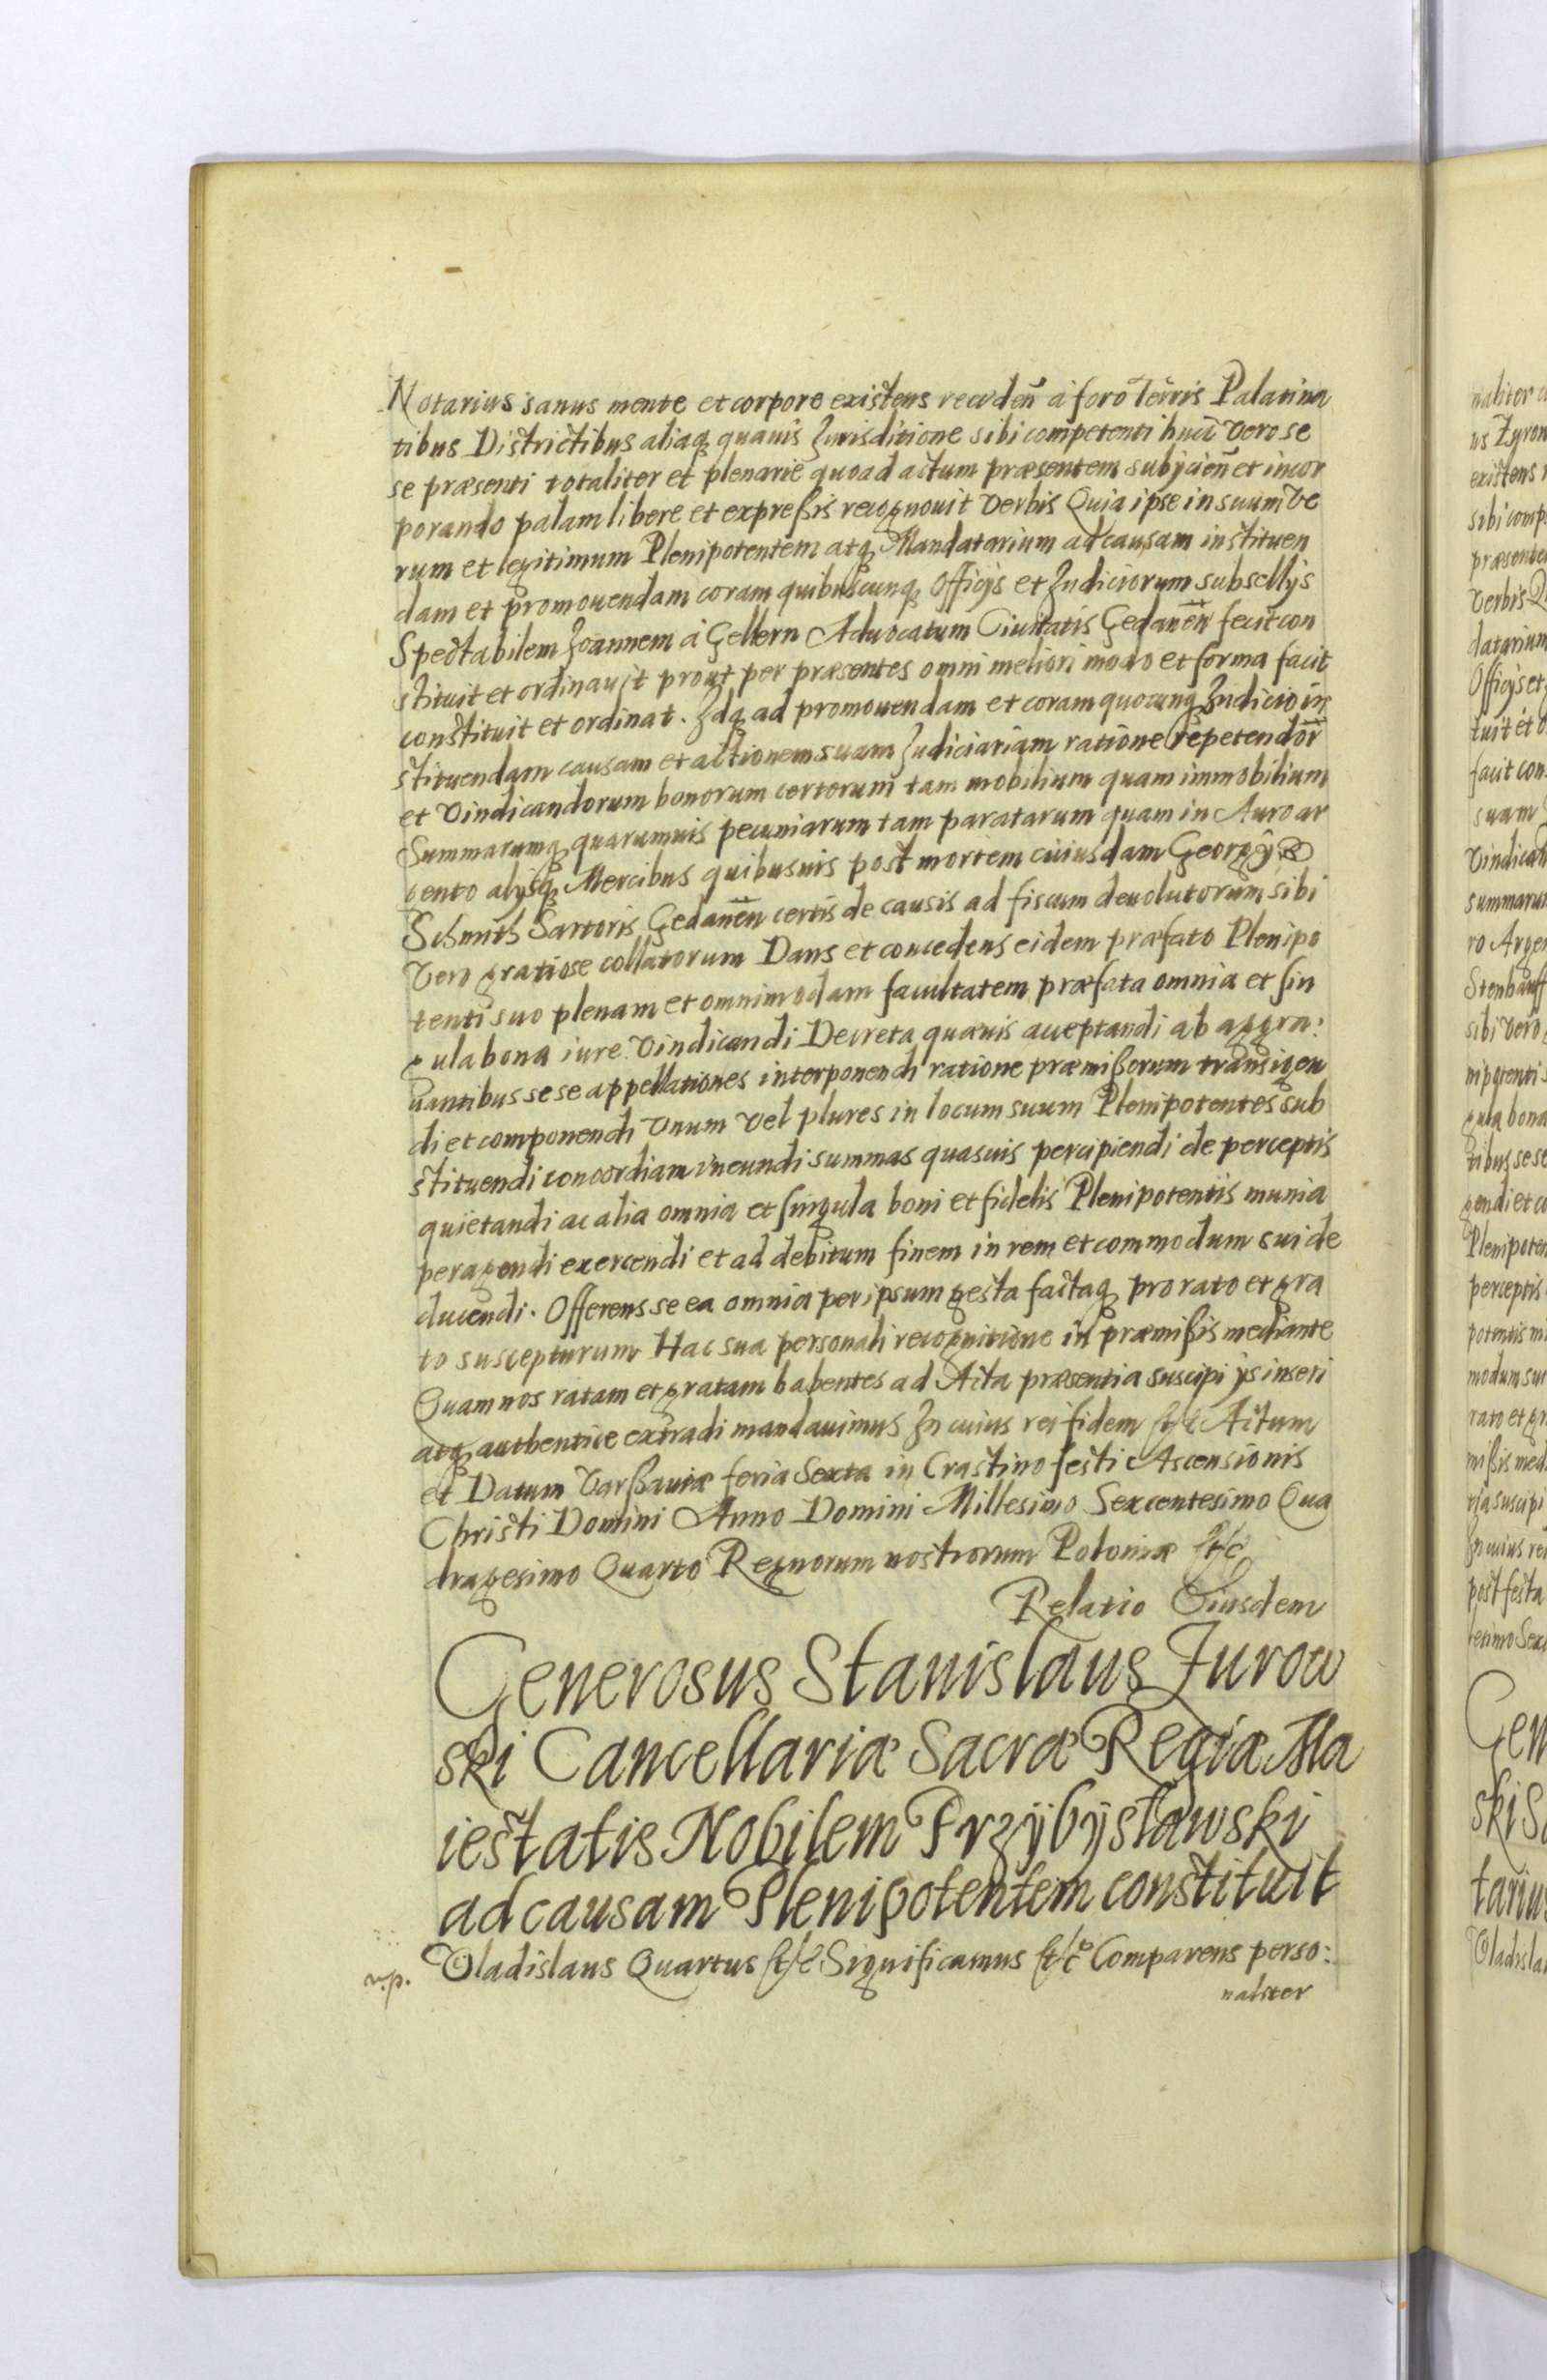 Notarius sanus mente et corpore existens receden̄ à foro Terris Palatina
tibus Districtibus aliaq̢ quauis Jurisditione sibi competenti huic vero se
se præsenti totaliter et plenarie quoad actum præsentem subijcien̄ et incor
porando palam libere et expreßis recognouit verbis Quia ipse in suum ve
rum et legitimum Plenipotentem atq̢ Mandatarium ad causam instituen
dam et promouendam coram quibuscunq̢ Officijs et Judiciorum subsellijs
Spectabilem Joannem à Gellern Aduocatum Ciuitatis Gedanen̄ fecit con
stituit et ordinauit prout per præsentes omni meliori modo et forma facit
constituit et ordinat. Idq̢ ad promouendam et coram quocunq̢ Judicio in
stituendam causam et actionem suam Judiciariam ratione repetendor̄
et vindicandorum bonorum certorum tam mobilium quam immobilium
Summarumq̢ quarumuis pecuniarum tam paratarum quam in Auro ar
gento alijsq̢ Mercibus quibusuis post mortem cuiusdam Georgÿ
Schmith Sartoris Gedanen̄ certis de causis ad fiscum deuolutorum sibi
vero gratiose collatorum Dans et concedens eidem præfato Plenipo
tenti suo plenam et omnimodam facultatem præfata omnia et sin
gula bona iure vindicandi Decreta quæuis acceptandi ab aggra:
uantibus sese appellationes interponendi ratione præmißorum transigen
di et componendi vnum vel plures in locum suum Plenipotentes sub
stituendi concordiam ineundi summas quasuis percipiendi de perceptis
quietandi ac alia omnia et singula boni et fidelis Plenipotentis munia
peragendi exercendi et ad debitum finem in rem et commodum sui de
ducendi. Offerens se ea omnia per ipsum gesta factaq̢ pro rato et gra
to suscepturum Hac sua personali recognitione in præmißis mediante
Quam nos ratam et gratam habentes ad Acta præsentia suscipi ijs inseri
atq̢ authentice extradi mandauimus In cuius rei fidem etc Actum
et Datum Varßauiæ feria Sexta in Crastino festi Ascensionis
Christi Domini Anno Domini Millesimo Sexcentesimo Qua
dragesimo Quarto Regnorum nostrorum Poloniæ etc
Relatio Eiusdem
Generosus Stanislaus Zurow
ski Cancellariæ Sacræ Regiæ Ma
iestatis Nobilem Przÿbÿsławski
ad causam Plenipotentem constituit
v.p. Vladislaus Quartus etc Significamus etc Comparens perso:
naliter